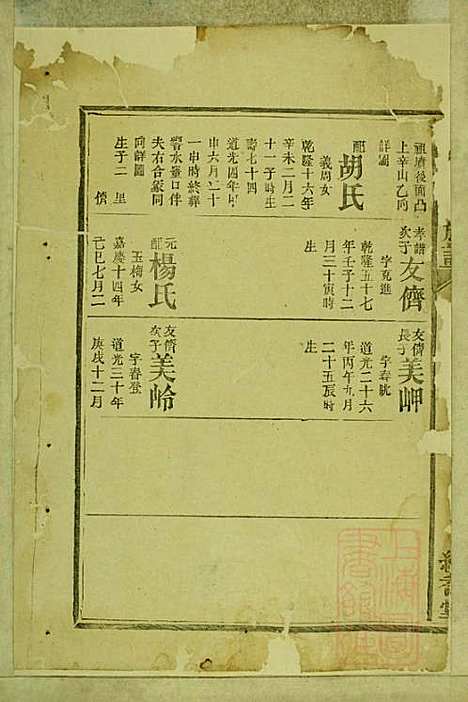 祖廣後面凸
上辛山乙向
詳圖
配胡氏
義周女
乾隆十六年
辛未二月二
十一子時生
壽七十四
道光四年甲
申六月二十
一申時終葬
夫右合冢同
向詳圖
生子二
里
儕
次子友儕
字克進
乾隆五十七
年壬子十二
月三十寅時
生
元配楊氏
玉梅女
嘉慶十四年
己巳七月二
友儕長子美岬
字春眺
道光二十六
年丙午九月
二十五辰時
生
友儕次子美岭
字春登
道光三十年
庚戌十二月
上海圖書館藏